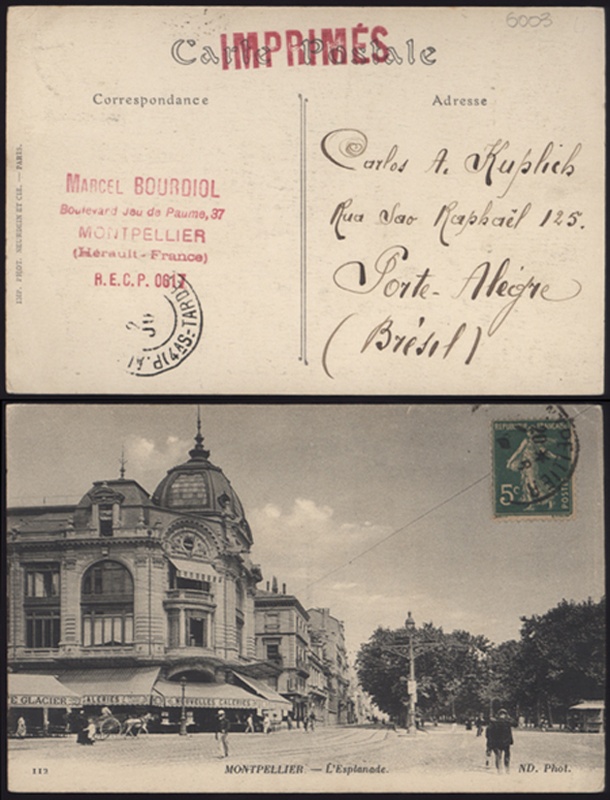 6003
Carte Postale
IMPRIMÉS
Correspondance
Adresse
IMP. PHOT. NEURDEIN ET CIE. — PARIS.
MARCEL BOURDIOL
Boulevard Jeu de Paume, 37
MONTPELLIER
(Hérault-France)
R.E.C.P. 0617
Carlos A. Kuplich
Rua Sao Raphaël 125.
Porte-Alégre
(Brésil)
REPUBLIQUE FRANÇAISE
5c
POSTES
E GLACIER
GALERIES
NOUVELLES GALERIES
112
MONTPELLIER. — L'Esplanade.
ND. Phot.